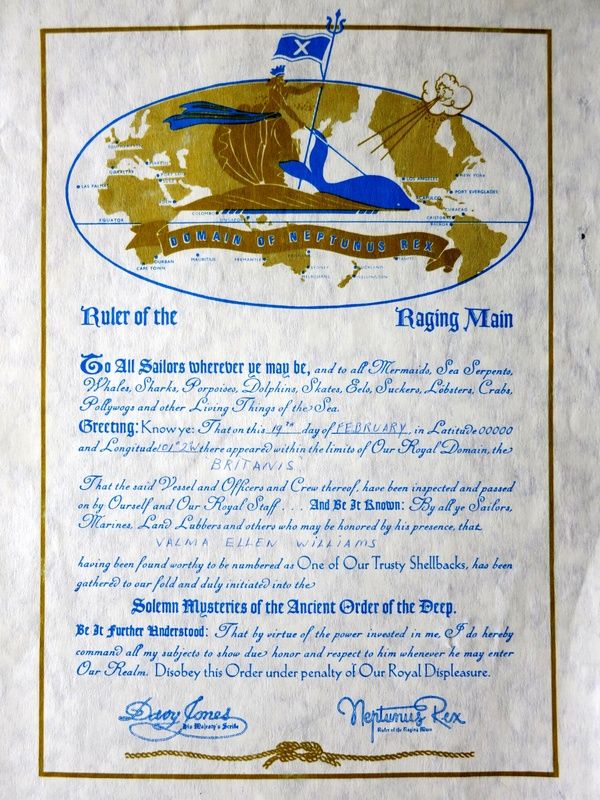 X
GIBRALTAR
LAS PALMAS
LOS ANGELES
NEW YORK
PORT EVERGLADES
ACAPULCO
CURACAO
CRISTOBAL
BALBOA
COLOMBO
EQUATOR
DOMAIN OF NEPTUNUS REX
DURBAN
CAPE TOWN
MAURITIUS
FREMANTLE
SYDNEY
MELBOURNE
AUCKLAND
WELLINGTON
TAHITI
Ruler of the Raging Main
To All Sailors wherever ye may be, and to all Mermaids, Sea Serpents,
Whales, Sharks, Porpoises, Dolphins, Skates, Eels, Suckers, Lobsters, Crabs,
Pollywogs and other Living Things of the Sea.
Greeting: Know ye: That on this 19TH day of FEBRUARY, in Latitude 00000
and Longitude 101°2W there appeared within the limits of Our Royal Domain, the
BRITANIS
That the said Vessel and Officers and Crew thereof, have been inspected and passed
on by Ourself and Our Royal Staff . . . And Be It Known: By all ye Sailors,
Marines, Land Lubbers and others who may be honored by his presence, that
VALMA ELLEN WILLIAMS
having been found worthy to be numbered as One of Our Trusty Shellbacks, has been
gathered to our fold and duly initiated into the
Solemn Mysteries of the Ancient Order of the Deep.
Be It Further Understood: That by virtue of the power invested in me, I do hereby
command all my subjects to show due honor and respect to him whenever he may enter
Our Realm. Disobey this Order under penalty of Our Royal Displeasure.
Davy Jones
His Majesty's Scribe
Neptunus Rex
Ruler of the Raging Main